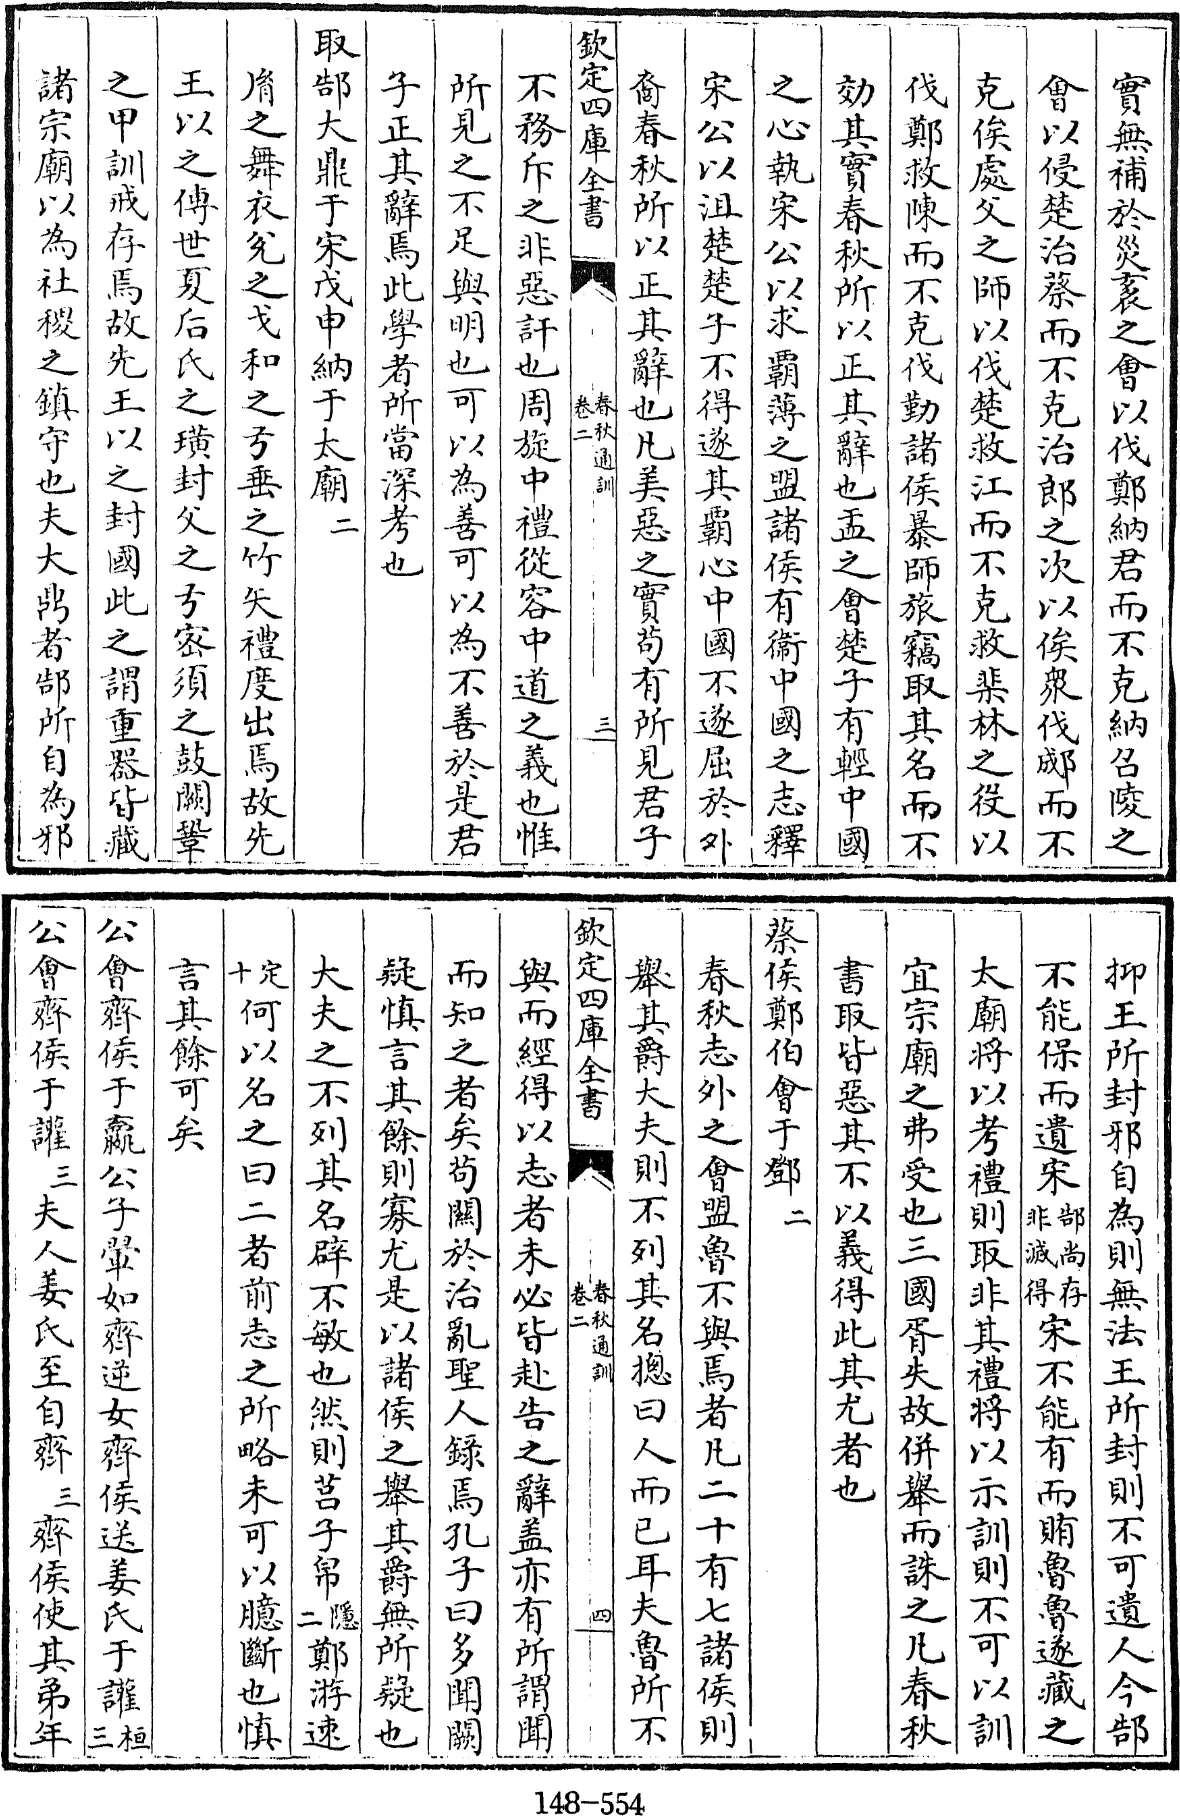 實無補於災袤之會以伐鄭納君而不克納召陵之
會以侵楚治蔡而不克治郎之次以俟衆伐郕而不
克俟處父之師以伐楚救江而不克救棐林之役以
伐鄭救陳而不克伐勤諸侯暴師旅竊取其名而不
効其實春秋所以正其辭也盂之會楚子有輕中國
之心執宋公以求霸薄之盟諸侯有衞中國之志釋
宋公以沮楚楚子不得遂其霸心中國不遂屈於外
裔春秋所以正其辭也凡美惡之實苟有所見君子
欽定四庫全書 春秋通訓 卷二 三
不務斥之非惡訐也周旋中禮從容中道之義也惟
所見之不足與明也可以為善可以為不善於是君
子正其辭焉此學者所當深考也
取郜大鼎于宋戊申納于太廟 二
𦙍之舞衣兊之戈和之弓垂之竹矢禮度出焉故先
王以之傳世夏后氏之璜封父之弓密須之鼓闕鞏
之甲訓戒存焉故先王以之封國此之謂重器皆藏
諸宗廟以為社稷之鎮守也夫大鼎者郜所自為邪
抑王所封邪自為則無法王所封則不可遺人今郜
不能保而遺宋郜尚存非滅得宋不能有而賄魯魯遂藏之
太廟將以考禮則取非其禮將以示訓則不可以訓
宜宗廟之弗受也三國胥失故併舉而誅之凡春秋
書取皆惡其不以義得此其尤者也
蔡侯鄭伯會于鄧 二
春秋志外之會盟魯不與焉者凡二十有七諸侯則
舉其爵大夫則不列其名摠曰人而已耳夫魯所不
欽定四庫全書 春秋通訓 卷二 四
與而經得以志者未必皆赴告之辭盖亦有所謂聞
而知之者矣苟關於治亂聖人錄焉孔子曰多聞闕
疑慎言其餘則寡尤是以諸侯之舉其爵無所疑也
大夫之不列其名辟不敏也然則莒子帛隱二鄭游速
定十何以名之曰二者前志之所略未可以臆斷也慎
言其餘可矣
公會齊侯于嬴公子翬如齊逆女齊侯送姜氏于讙桓三
公會齊侯于讙 三夫人姜氏至自齊 三齊侯使其弟年
148-554